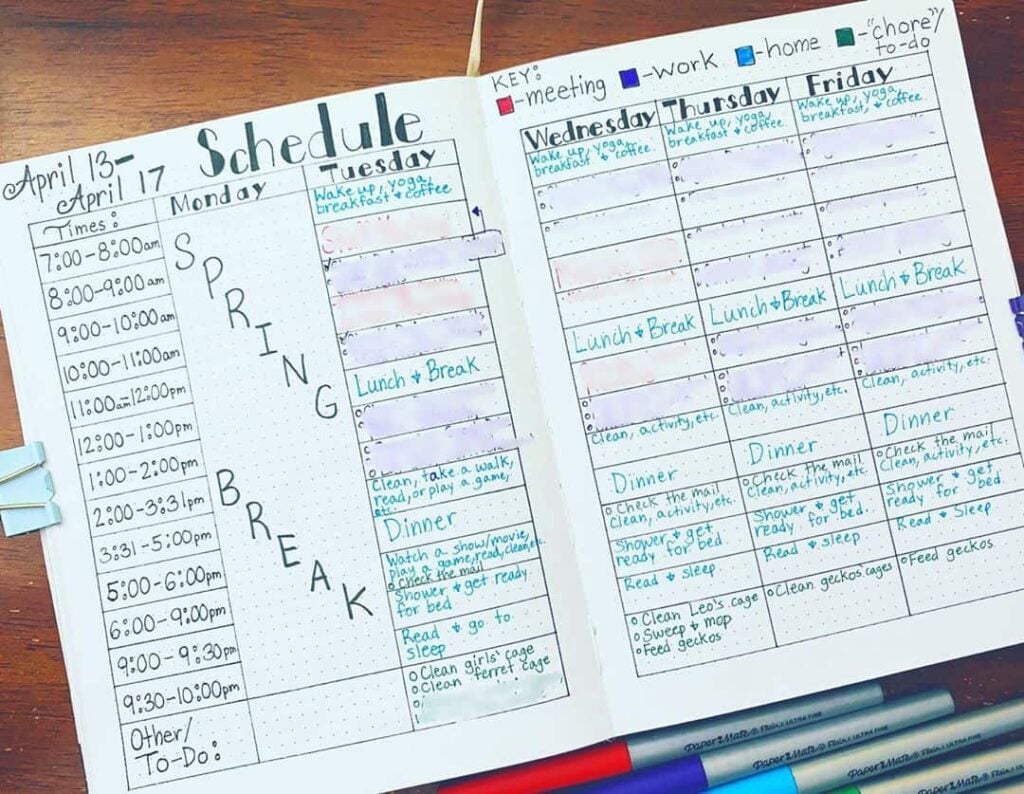 April 13-
April 17
Schedule
Times:
7:00-8:00am
8:00-9:00am
9:00-10:00am
10:00-11:00am
11:00am-12:00pm
12:00-1:00pm
1:00-2:00pm
2:00-3:31pm
3:31-5:00pm
5:00-6:00pm
6:00-9:00pm
9:00-9:30pm
9:30-10:00pm
Other/
To-Do:
Monday
SPRING
BREAK
Tuesday
Wake up, yoga,
breakfast + coffee
Lunch + Break
Clean, take a walk,
read, or play a game,
etc.
Dinner
Watch a show/movie,
play a game, read, clean, etc.
Check the mail
Shower + get ready
for bed
Read + go to
sleep
Clean girls' cage
Clean ferret cage
KEY:
-meeting
-work
-home
-"chore"/
to-do
Wednesday
Wake up, yoga,
breakfast + coffee.
Lunch + Break
Clean, activity, etc.
Dinner
Check the mail
Clean, activity, etc.
Shower + get
ready for bed.
Read + sleep
Clean Leo's cage
Sweep + mop
Feed geckos
Thursday
Wake up, yoga,
breakfast + coffee.
Lunch + Break
Clean, activity, etc.
Dinner
Check the mail
Clean, activity, etc.
Shower + get
ready for bed.
Read + sleep
Clean geckos' cages
Friday
Wake up, yoga,
breakfast, + coffee.
Lunch + Break
Clean, activity, etc.
Dinner
Check the mail
Clean, activity, etc.
Shower + get
ready for bed.
Read + Sleep
Feed geckos
PAPER MATE® FLAIR ULTRA FINE
PAPER MATE® FLAIR ULTRA FINE
PAPER MATE® FLAIR ULTRA FINE
PAPER MATE